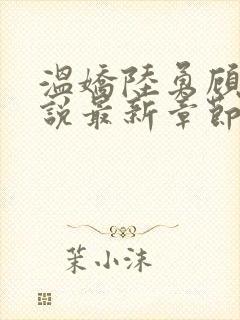 溫嬌陸勇顧
說最新章節
茉小沫